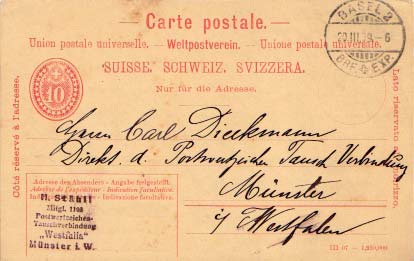 Carte postale.
Union postale universelle. — Weltpostverein. — Unione postale universale.
SUISSE. SCHWEIZ. SVIZZERA.
Nur für die Adresse.
Côté réservé à l'adresse.
Lato riservato all'indirizzo.
10
BASEL 2
III 6
BRF. EXP.
Herrn Carl Dieckmann
Direkt. d. Postwertzeichen Tausch Verbindung
Münster
i/ Westfalen
Adresse des Absenders - Angabe freigestellt.
Adresse de l'expéditeur - Indication facultative.
Indicazione facoltativa.
H. Stähli
Mitgl. 1108
Postwertzeichen-
Tauschverbindung
„Westfalia"
Münster i. W.
III 07 —